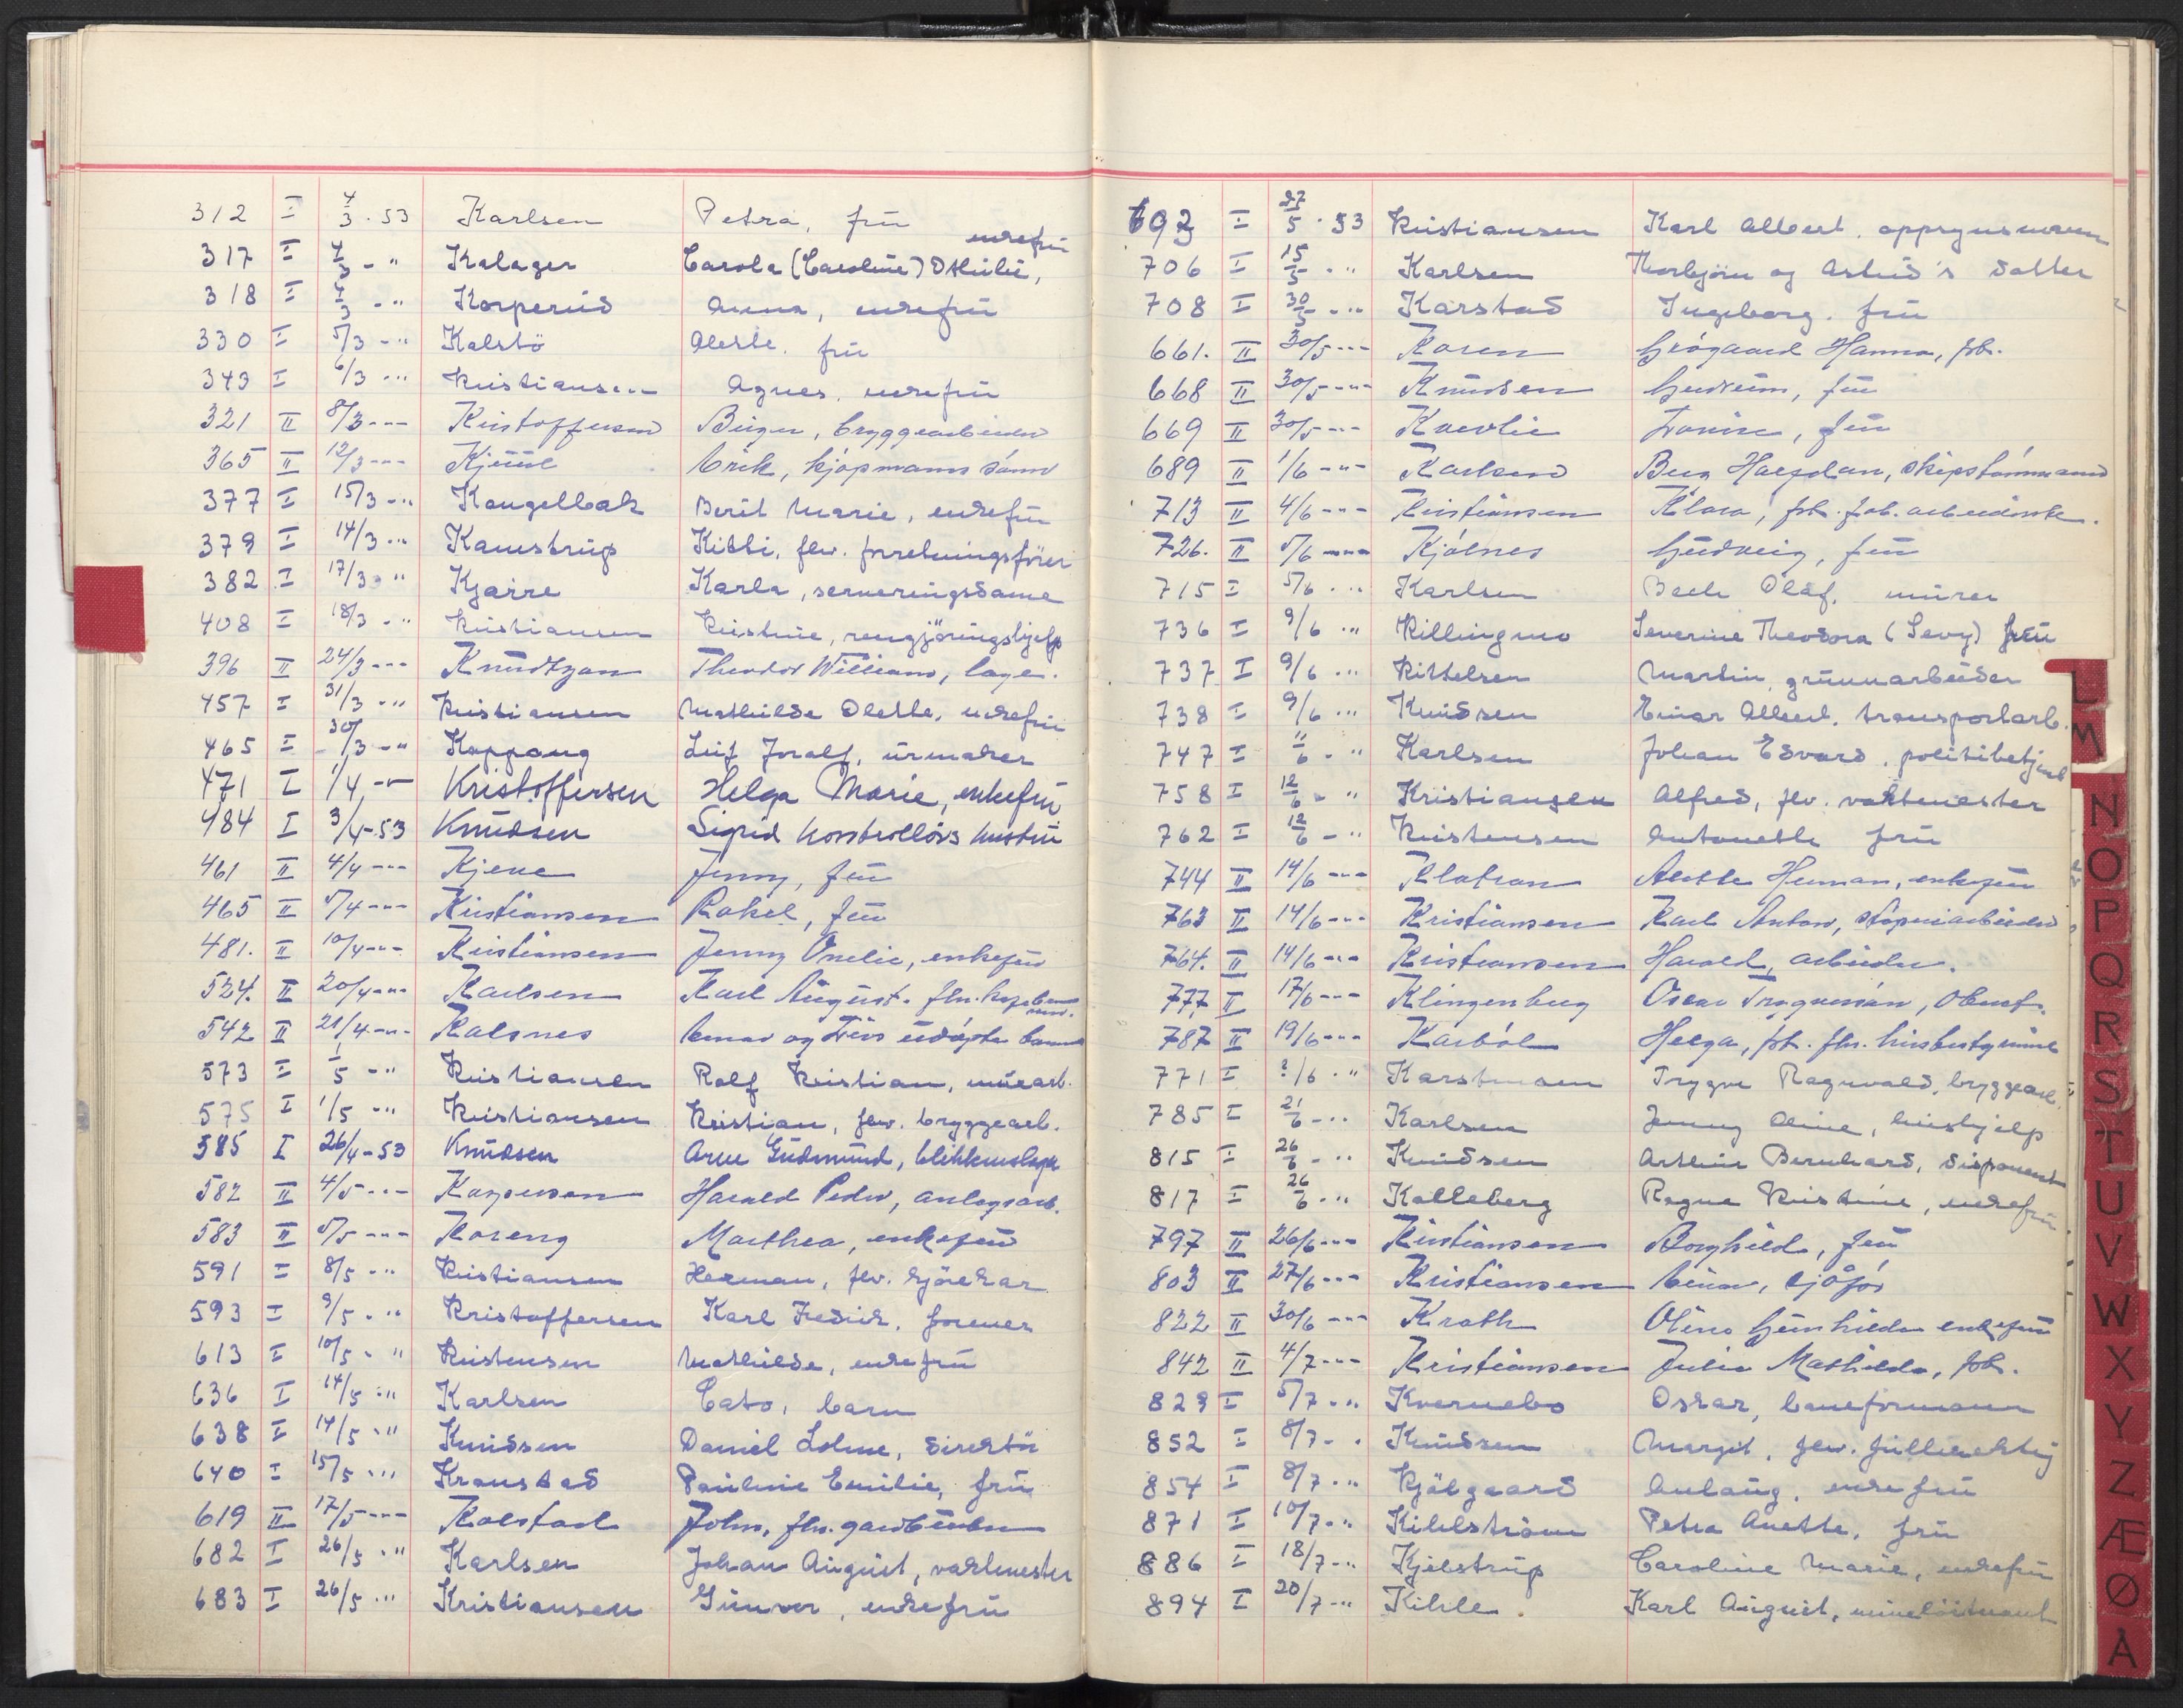 312 I 4/3 . 53 Karlsen Petra, frü
317 I 4/3 - " Kalager Carola (Caroline) Othilie, enkefrü
318 I 4/3 - " Korperud Anna, enkefrü
330 I 5/3 - " Kalstö Alette. frü
343 I 6/3 - " Kristiansen Agnes, enkefrü
321 II 8/3 -"- Kristoffersen Birger, bryggearbeider
365 II 12/3 -"- Kjuul Erik, kjøpmanns sønn
377 I 15/3 - " Kaugelbak Berit Marie, enkefrü
379 I 14/3 - " Kamstrüp Kitti, flv. forretningsfører
382 I 17/3 - " Kjærre Karla, serveringsdame
408 I 18/3 - " Kristiansen Kristine, rengjöringshjelp
396 II 24/3 -"- Knudtzon Theodor William, lage.
457 I 31/3 - " Kristiansen Mathilde Olette, enkefrü
465 I 30/3 - " Koppang Leif Joralf, ürmaker
471 I 1/4 - " Kristoffersen Helga Marie, enkefrü
484 I 3/4 - 53 Knüdsen Sigrid kontrollörs hustrü
461 II 4/4 -"- Kjene Jenny, frü
465 II 5/4 -"- Kristiansen Rakel, frü
481. II 10/4 -"- Kristiansen Jenny Onelie, enkefrü
524. II 20/4 -"- Karlsen Karl Aügüst.
542 II 21/4 -"- Kalsnes Einar og Liv's üdøpte barn
573 I 1/5 - " Kristiansen Rolf Kristian, mürarb.
575 I 1/5 - " Kristiansen Kristian, flv. bryggearb.
585 I 26/4 - 53 Knüdsen Arne Güdmünd, blikkenslager
582 II 4/5 -"- Kaspersen Harald Peder, anlegsarb.
583 II 5/5 -"- Koreng Marthea, enkefrü
591 I 8/5 - " Kristiansen Herman, flv. kjörekar
593 I 9/5 - " Kristoffersen Karl Fredrik, former
613 I 10/5 - " Kristensen Mathilde, enkefrü
636 I 14/5 - " Karlsen Cato, barn
638 I 14/5 - " Knüdsen Daniel Lohne, direktör
640 I 15/5 - " Kronstad Pauline Emilie, frü
619 II 17/5 -"- Kolstad John, flv. gardbrüker
682 I 26/5 - " Karlsen Johan Aügüst, vaktmester
683 I 26/5 - " Kristiansen Günvor, enkefrü
693 I 27/5 . 53 Kristiansen Karl Albert. oppsynsmann
706 I 15/5 - " Karlsen Thorbjörn og Astrid's datter
708 I 30/5 - " Karstad Ingeborg. frü
661. II 30/5 -"- Koren Grøgaard Hanna, frk.
668 II 30/5 -"- Knudsen Gudrün, frü
669 II 30/5 -"- Kvevlie Lovise, frü
689 II 1/6 -"- Karlsen Berg Halfdan, skipstømmermand
713 II 4/6 -"- Kristiansen Klara, frk. fab. arbeiderske.
726. II 5/6 -"- Kjølnes Güdveig, frü
715 I 5/6 - " Karlsen Bech Olaf, mürer
736 I 9/6 - " Killingmo Severine Theodora (Sevy) frü
737 I 9/6 - " Kittelsen Martin, grünnarbeider
738 I 9/6 - " Knüdsen Einar Albert, transportarb.
747 I 11/6 - " Karlsen Johan Edvard, politibetjent
758 I 12/6 - " Kristiansen Alfred, flv. vaktmester
762 I 12/6 - " Kristensen Antonette frü
744 II 14/6 -"- Klotran Anette Herman, enkefrü
763 II 14/6 -"- Kristiansen Karl Anton, støperiarbeider
764. II 14/6 -"- Kristiansen Harald, arbeider.
777. II 17/6 -"- Klingenberg Oscar Trygvesøn,
787 II 19/6 -"- Karbøl Helga, frk. flv. hüsbestyrerinne
771 I ?/6 - " Karstensen Trygve Ragnvald, bryggearb.
785 I 21/6 - " Karlsen Jenny Oline, hüshjelp
815 I 26/6 - " Knüdsen Arthür Bernhard, disponent
817 I 26/6 - " Kolleberg Ragna Kristine, enkefrü
797 II 26/6 -"- Kristiansen Borghild, frü
803 II 27/6 -"- Kristiansen Einar, sjåfør
822 II 30/6 -"- Krath Oline Günhilda enkefrü
842 II 4/7 -"- Kristiansen Julie Mathilde, frk.
829 I 5/7 - " Kvernebo Oskar, baneformann
852 I 8/7 - " Knüdsen Margit, flv. füllmektig
854 I 8/7 - " Kjölgaard Anlaug, enkefrü
871 I 10/7 - " Kihlström Petra Anette, frü
886 I 18/7 - " Kjelstrüp Caroline Marie, enkefrü
894 I 20/7 - " Kihle. Karl Aügüst, mineløitnant
L
M
N
O
P
Q
R
S
T
U
V
W
X
Y
Z
Æ
Ø
A